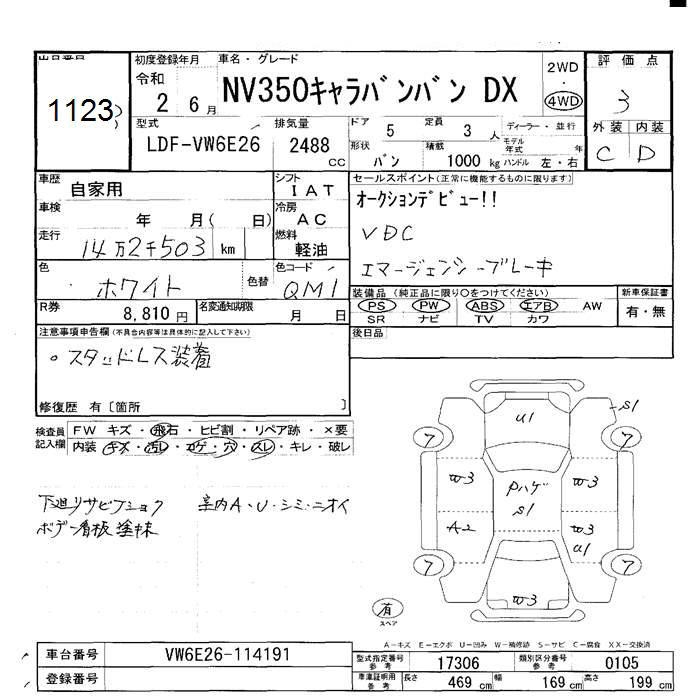 初度登録年月 車名・グレード 2WD・4WD 評価点
1123
令和 2 6月 NV350キャラバンバン DX 3
型式 排気量 ドア 5 定員 3 人 ディーラー・並行 外装 内装
LDF-VW6E26 2488 CC 形状 バン 積載 1000 kg モデル年式 年 ハンドル 左・右 C D
車歴 自家用 シフト IAT セールスポイント(正常に機能するものに限ります)
車検 年 月( 日) 冷房 AC オークションデビュー!!
走行 14万2千503 km 燃料 軽油 VDC
色 ホワイト 色替 色コード QM1 エマージェンシーブレーキ
R券 8,810円 名変通知期限 月 日 装備品(純正品に限り○をつけてください) 新車保証書
PS PW ABS エアB AW 有・無
SR ナビ TV カワ
注意事項申告欄(不具合内容等は具体的に記入して下さい) 後日品
・スタッドレス装着
修復歴 有〔箇所 〕
検査員記入欄 FW キズ・飛石・ヒビ割・リペア跡・×要
内装 キズ・汚レ・コゲ・穴・スレ・キレ・破レ
下廻リサビフショク 室内A・U・シミ・ニオイ
ボデー看板塗抹
U1 S1
7 7
W3 Pハゲ W3
S1
A2 W3
U1
7 7
W3
有
スペア
A-キズ E-エクボ U-凹み W-補修跡 S-サビ C-腐食 XX-交換済
車台番号 VW6E26-114191 型式指定番号 参考 17306 類別区分番号 参考 0105
登録番号 車庫証明用 参考 長さ 469 cm 幅 169 cm 高さ 199 cm